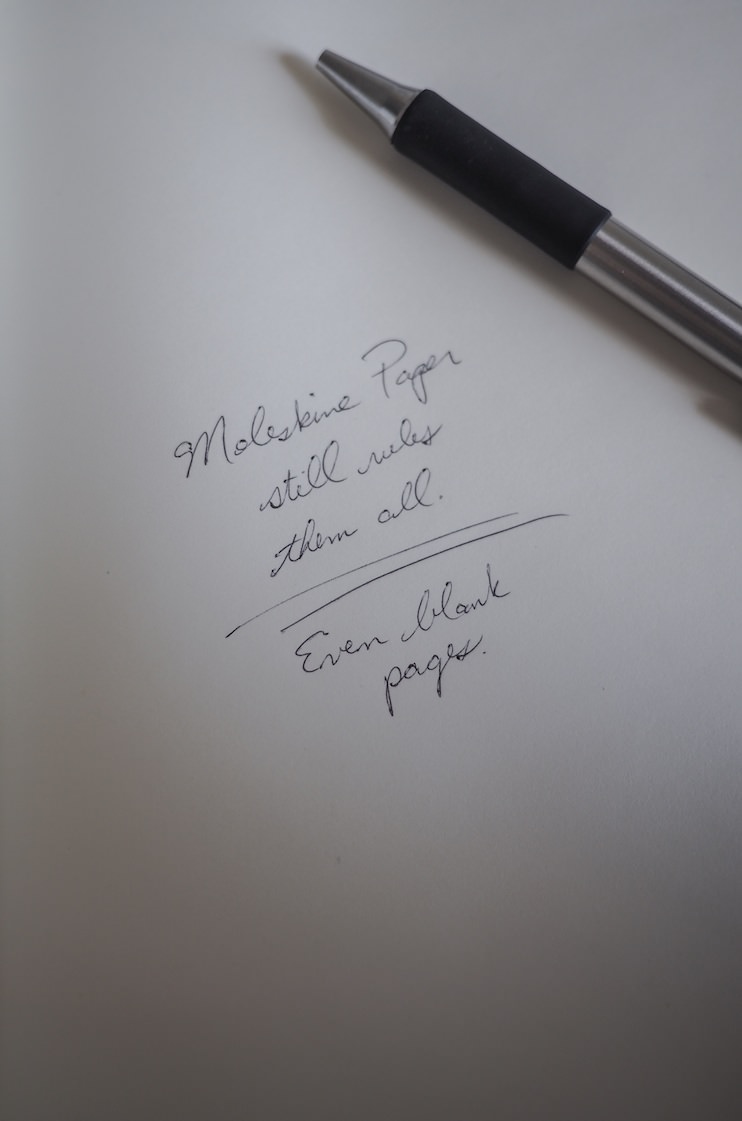 Moleskine Paper
still rules
them all.
Even blank
pages.